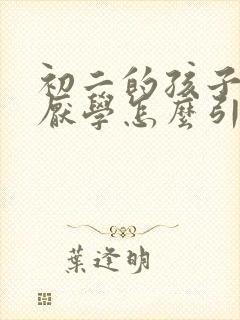 初二的孩子
厭學怎麼引
葉逢明